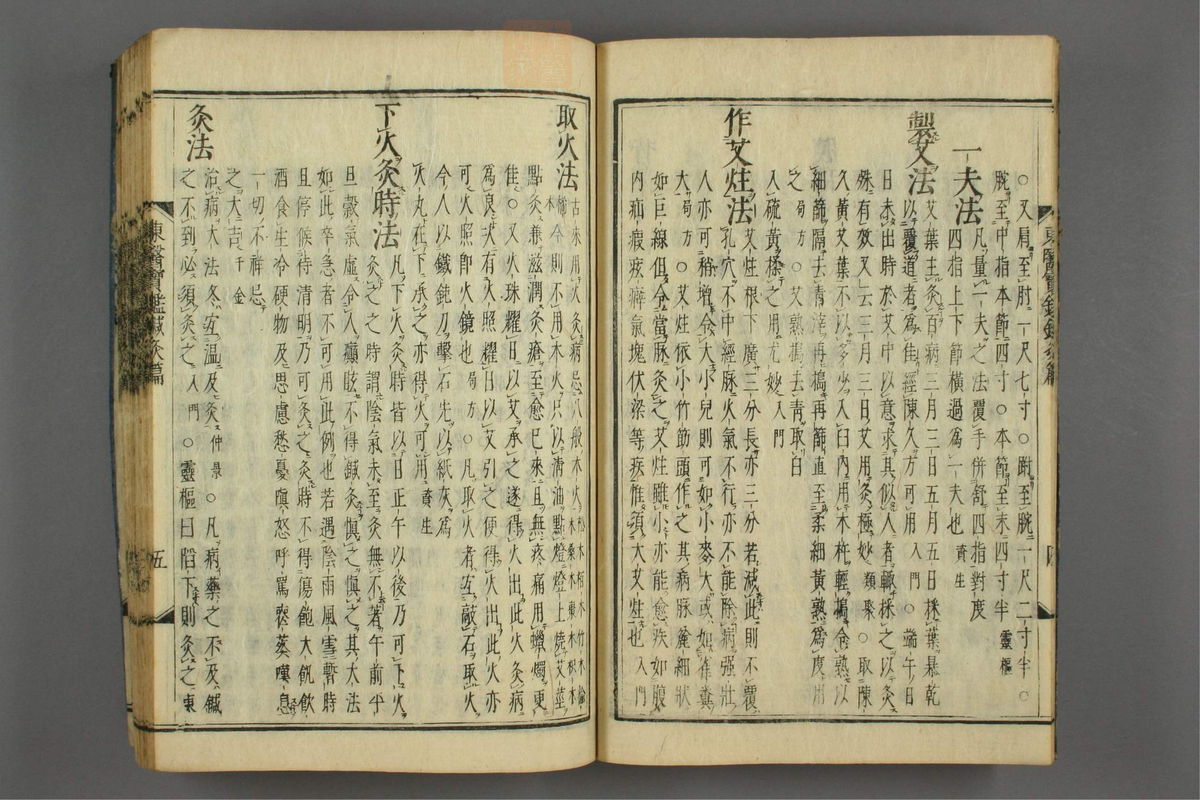 ○又肩至肘一尺七寸○肘至腕一尺二寸半○
腕至中指本節四寸○本節至末四寸半 靈樞
一夫法
凡量一夫之法覆手併舒四指對度
四指上下節橫過爲一夫也 資生
製艾法
艾葉主灸百病三月三日五月五日採葉暴乾
以覆道者爲佳經陳久方可用 入門 ○端午日
日未出時於艾中以意求其似人者輙採之以灸
殊有效又云三月三日艾用灸極妙 類聚 ○取陳
久黃艾葉不以多少入臼內用木杵輕搗令熟以
細篩隔去靑滓再搗再篩直至柔細黃熟爲度用
之 局方 ○艾熟搗去靑取白
入硫黃揉之用尤妙 入門
作艾炷法
艾炷根下廣三分長亦三分若減此則不覆
孔穴不中經脉火氣不行亦不能除病强壯
人亦可稍增令大小兒則可如小麥大或如雀糞
大 局方 ○艾炷依小竹筯頭作之其病脉麄細狀
如巨線但令當脉灸之艾炷雖小亦能愈疾如腹
內疝瘕痃癖氣塊伏梁等疾惟須大艾炷也 入門
東醫寶鑑鍼灸篇
取火法
古來用火灸病忌八般木火 松木栢木竹木楡木桑木棗木枳木橘木
今則不用木火只以淸油點燈燈上燒艾莖
點灸兼滋潤灸瘡至愈已來且無疼痛用蠟燭更
佳○又火珠耀日以艾承之遂得火出此火灸病
爲良次有火照耀日以艾引之便得火出此火亦
可火照卽火鏡也 局方 ○凡取火者宜敲石取火
今人以鐵鈍刀擊石先以紙灰爲
火丸在下承之亦得火可用 資生
下火灸時法
凡下火灸時皆以日正午以後乃可下火
灸之之時謂陰氣未至灸無不着午前平
旦穀氣虛令人癲眩不得鍼灸愼之愼之其大法
如此卒急者不可用此例也若遇陰雨風雪暫時
且停候待淸明乃可灸之灸時不得傷飽大飢飮
酒食生冷硬物及思慮愁憂嗔怒呼罵喪葬嘆息
一切不祥忌
之大吉 千金
灸法
治病大法冬宜溫及灸 仲景 ○凡病藥之不及鍼
之不到必須灸之 入門 ○靈樞曰陷下則灸之東
東醫寶鑑鍼灸篇
五